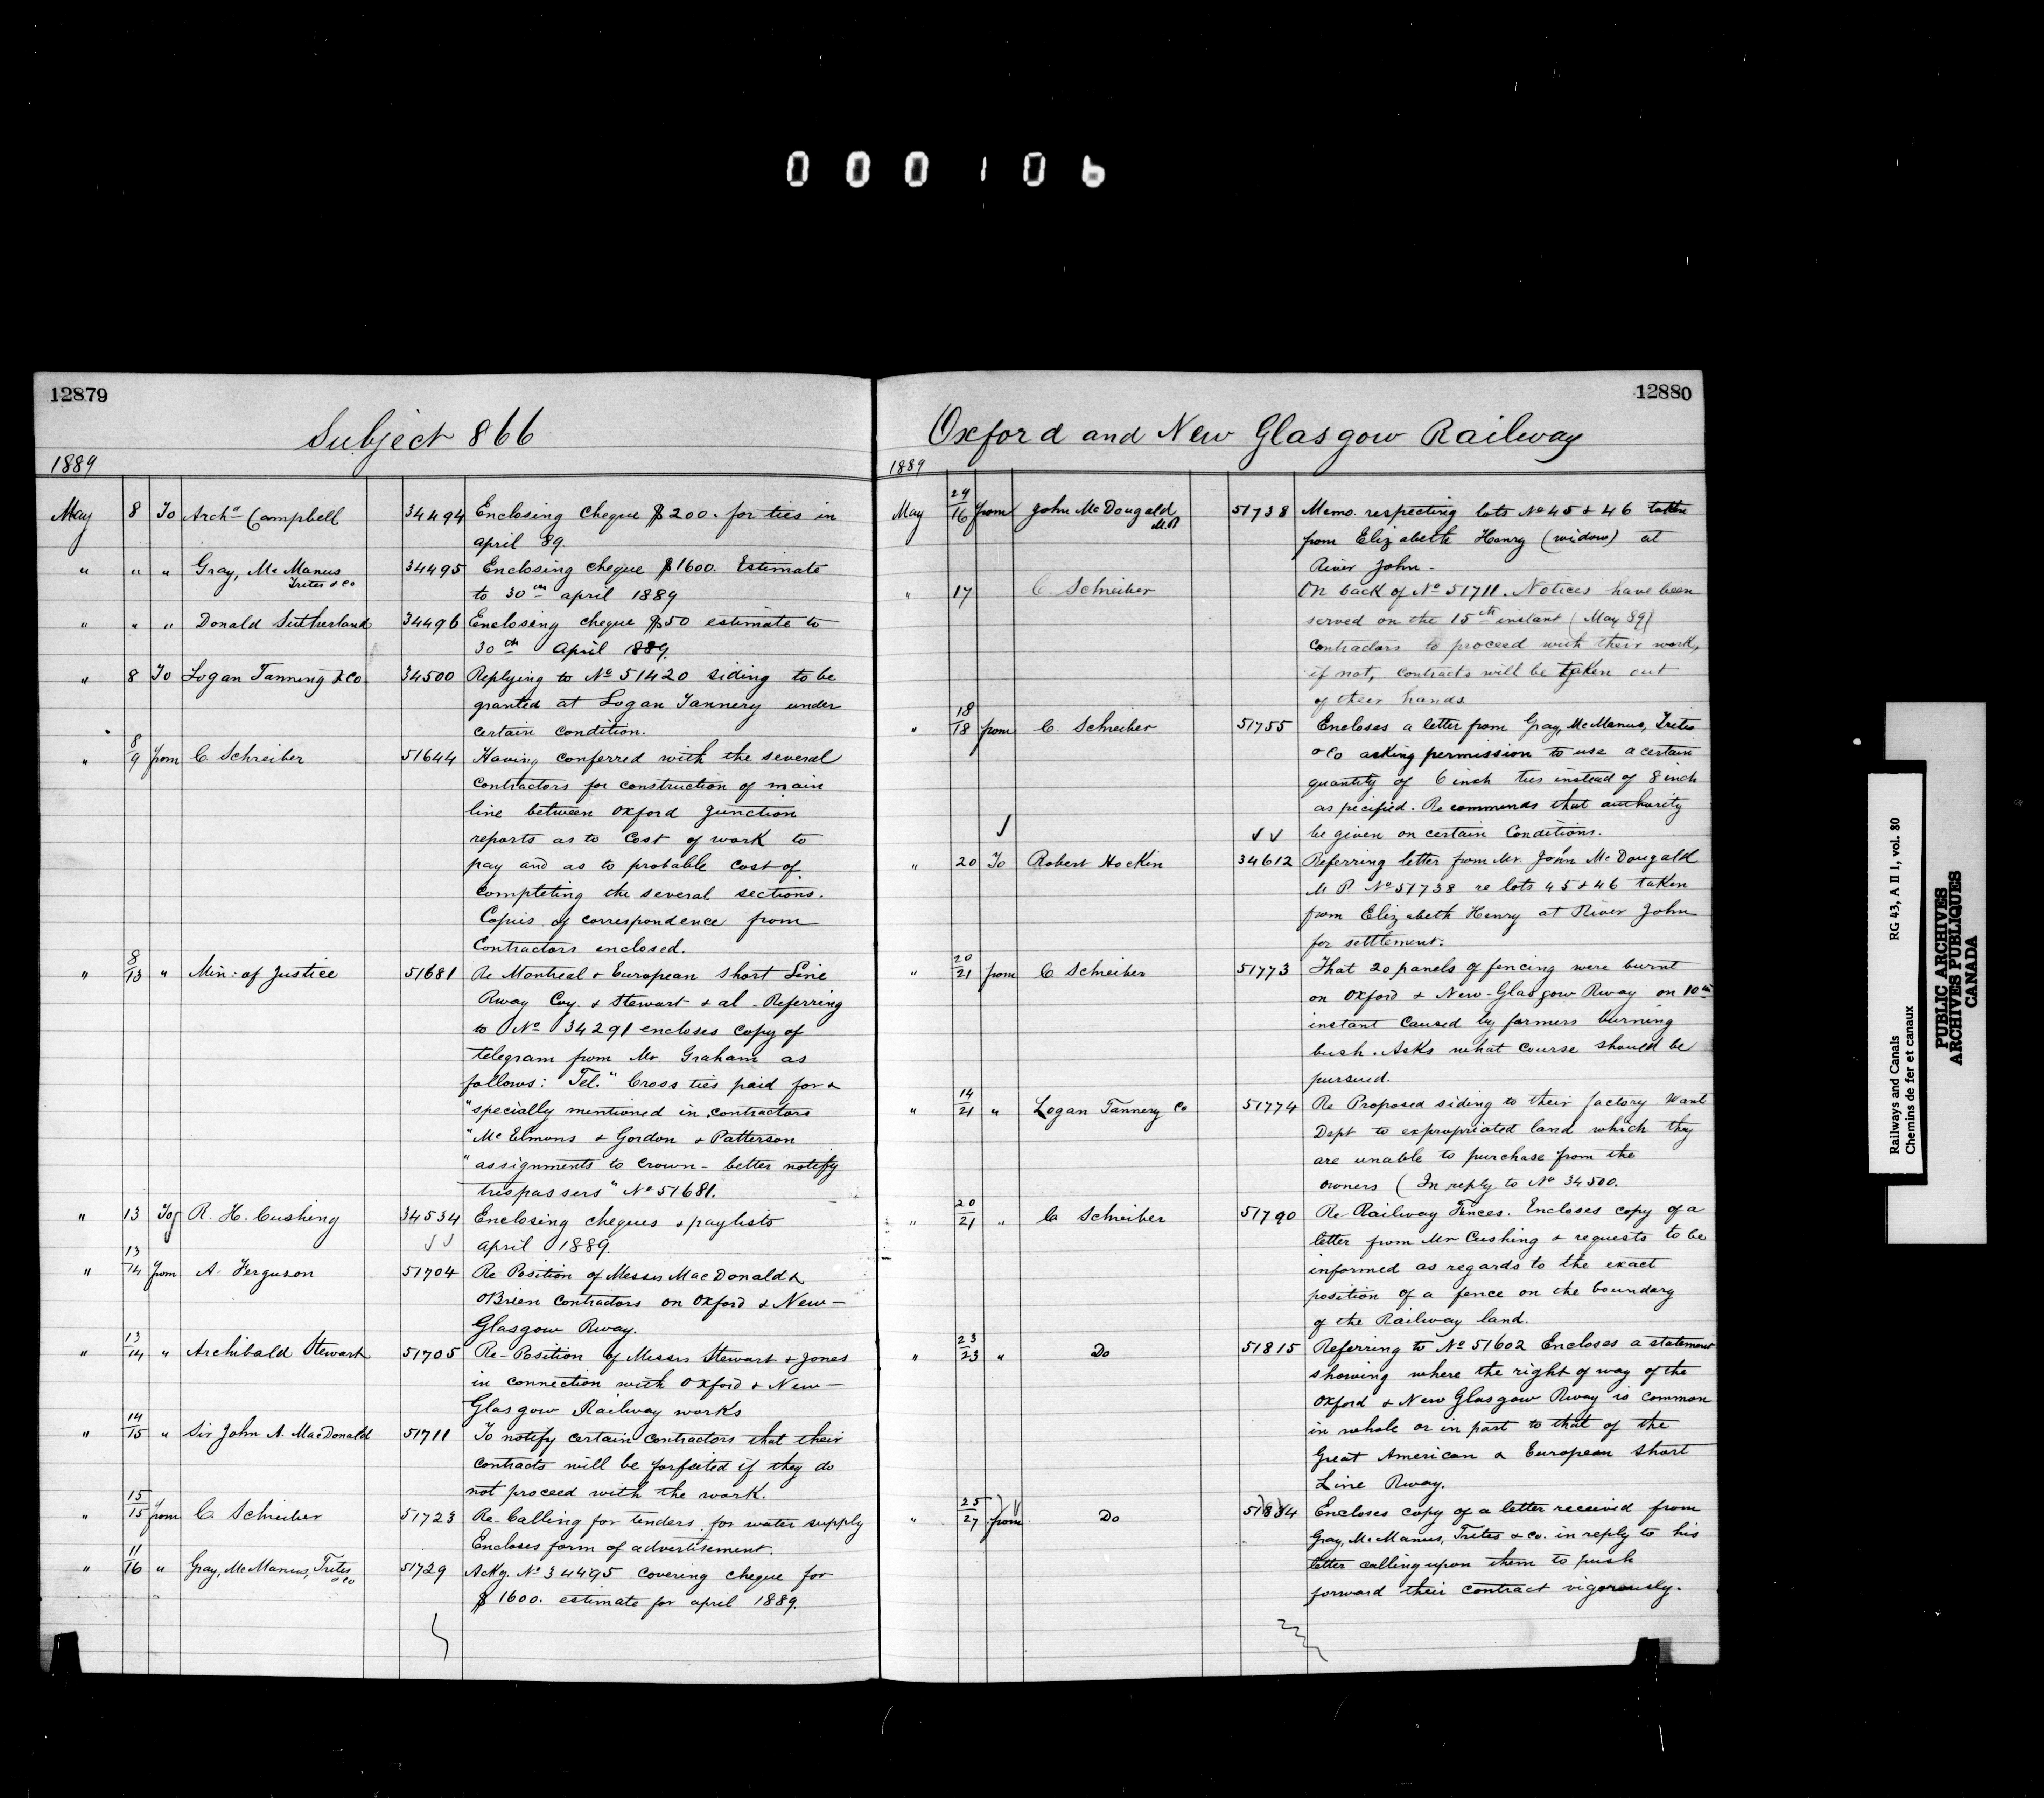 000106
12879
Subject 866
1889
May 8 To Archd Campbell 34494 Enclosing Cheque $200. for ties in
april 89.
" " " Gray, McManus 34495 Enclosing Cheque $1600. Estimate
Trites & Co to 30th april 1889
" " " Donald Sutherland 34496 Enclosing cheque $50 estimate to
30th April 1889.
" 8 To Logan Tanning & Co 34500 Replying to No 51420 siding to be
granted at Logan Tannery under
certain condition.
" 8/9 from C Schreiber 51644 Having conferred with the several
Contractors for construction of main
line between Oxford Junction
reports as to Cost of work to
pay and as to probable Cost of
Completing the several sections.
Copies of correspondence from
Contractors enclosed.
" 8/13 " Min: of Justice 51681 Re Montreal & European Short Line
Rway Coy. & Stewart & al - Referring
to No 34291 encloses Copy of
telegram from Mr Graham as
follows: Tel. "Cross ties paid for &
"specially mentioned in contractors
"McElmons & Gordon & Patterson
"assignments to Crown - better notify
trespassers" No 51681.
" 13 To R. H. Cushing 34534 Enclosing cheques & paylists
april 1889.
" 13/14 from A. Ferguson 51704 Re Position of Messrs MacDonald &
OBrien Contractors on Oxford & New-
Glasgow Rway.
" 13/14 " Archibald Stewart 51705 Re-Position of Messrs Stewart & Jones
in connection with Oxford & New-
Glasgow Railway works
" 14/15 " Sir John A. MacDonald 51711 To notify certain Contractors that their
Contracts will be forfeited if they do
not proceed with the work.
" 15/15 from C. Schreiber 51723 Re Calling for tenders for water supply
Encloses form of advertisement.
" 11/16 " Gray, McManus, Trites & Co 51729 Ackg. No 34495 Covering cheque for
$1600. estimate for april 1889.
12880
Oxford and New Glasgow Railway
1889
May 24/16 from John McDougald M.P. 51738 Memo. respecting lots No 45 & 46 taken
from Elizabeth Henry (widow) at
River John -
" 17 C. Schreiber On back of No 51711. Notices have been
served on the 15th instant (May 89)
Contractors to proceed with their work,
if not, contracts will be taken out
of their hands
" 18/18 from C. Schreiber 51755 Encloses a letter from Gray, McManus, Trites
& Co asking permission to use a certain
quantity of 6 inch ties instead of 8 inch
as pecified. Recommends that authority
be given on certain Conditions.
" 20 To Robert Hockin 34612 Referring letter from Mr. John McDougald
M P. No 51738 re lots 45 & 46 taken
from Elizabeth Henry at River John
for settlement.
" 20/21 from C Schreiber 51773 That 20 panels of fencing were burnt
on Oxford & New-Glasgow Rway on 10th
instant Caused by farmers burning
bush. Asks what Course should be
pursued.
" 14/21 " Logan Tannery Co 51774 Re Proposed siding to their factory Want
Dept to expropriated land which they
are unable to purchase from the
owners (In reply to No 34500.
" 20/21 " C. Schreiber 51790 Re-Railway Fences. Encloses copy of a
letter from Mr Cushing & requests to be
informed as regards to the exact
position of a fence on the boundary
of the Railway land.
" 23/23 " Do 51815 Referring to No 51602 Encloses a statement
showing where the right of way of the
Oxford & New Glasgow Rway is common
in whole or in part to that of the
Great American & European Short
Line Rway.
" 25/27 from Do 51834 Encloses copy of a letter received from
Gray, McManus, Trites & Co. in reply to his
letter calling upon them to push
forward their contract vigorously.
Railways and Canals RG 43, A II 1, vol. 80
Chemins de fer et canaux
PUBLIC ARCHIVES
ARCHIVES PUBLIQUES
CANADA